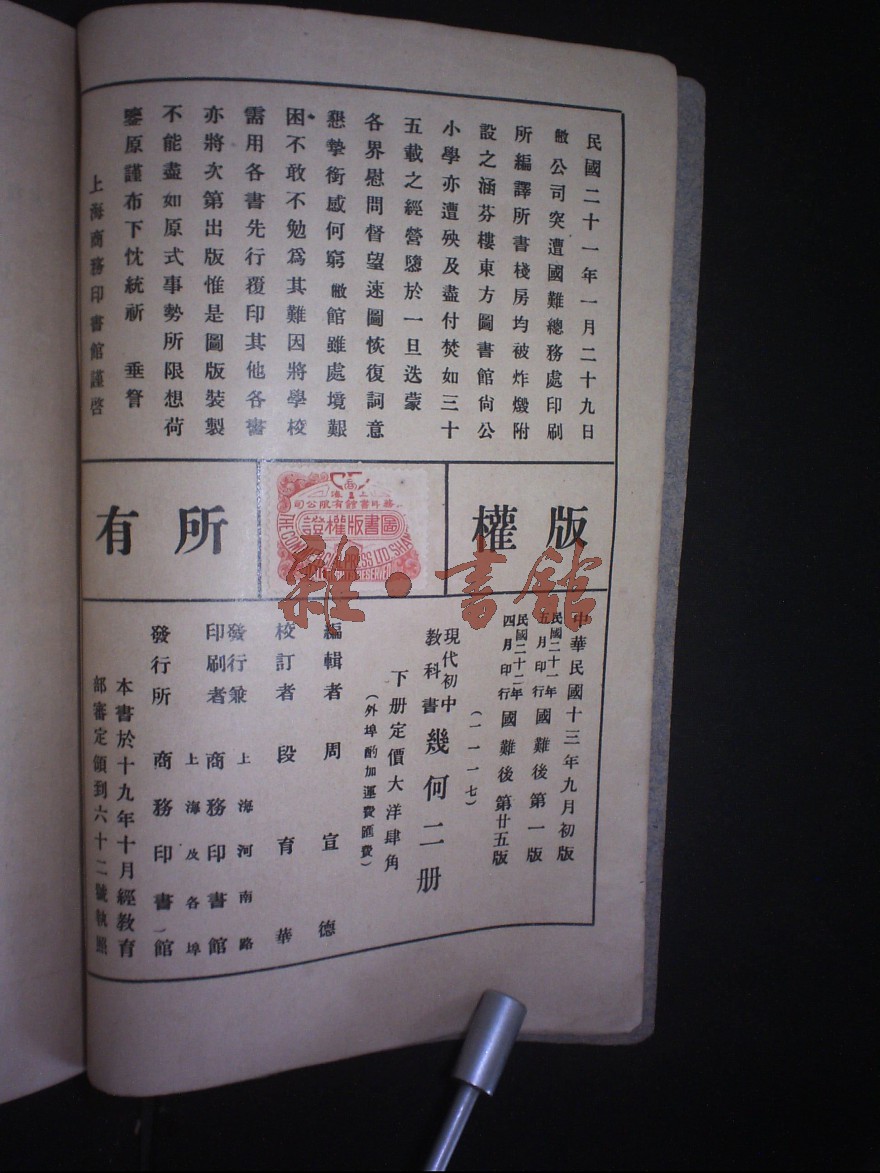 民國二十一年一月二十九日
敝公司突遭國難總務處印刷
所編譯所書棧房均被炸燬附
設之涵芬樓東方圖書館尚公
小學亦遭殃及盡付焚如三十
五載之經營隳於一旦迭蒙
各界慰問督望速圖恢復詞意
懇摯銜感何窮敝館雖處境艱
困不敢不勉為其難因將學校
需用各書先行覆印其他各書
亦將次第出版惟是圖版裝製
不能盡如原式事勢所限想荷
鑒原謹布下忱統祈 垂詧
上海商務印書館謹啓
版權
上海
務印書館有限公司
圖書版權證
所有
雜·書館
中華民國十三年九月初版
民國二十一年五月印行 國難後第一版
民國二十二年四月印行 國難後第廿五版
(一一一七)
現代初中教科書 幾何二册
下册定價大洋肆角
(外埠酌加運費匯費)
編輯者 周宣德
校訂者 段育華
發行兼印刷者 上海河南路 商務印書館
發行所 上海及各埠 商務印書館
本書於十九年十月經教育
部審定領到六十二號執照